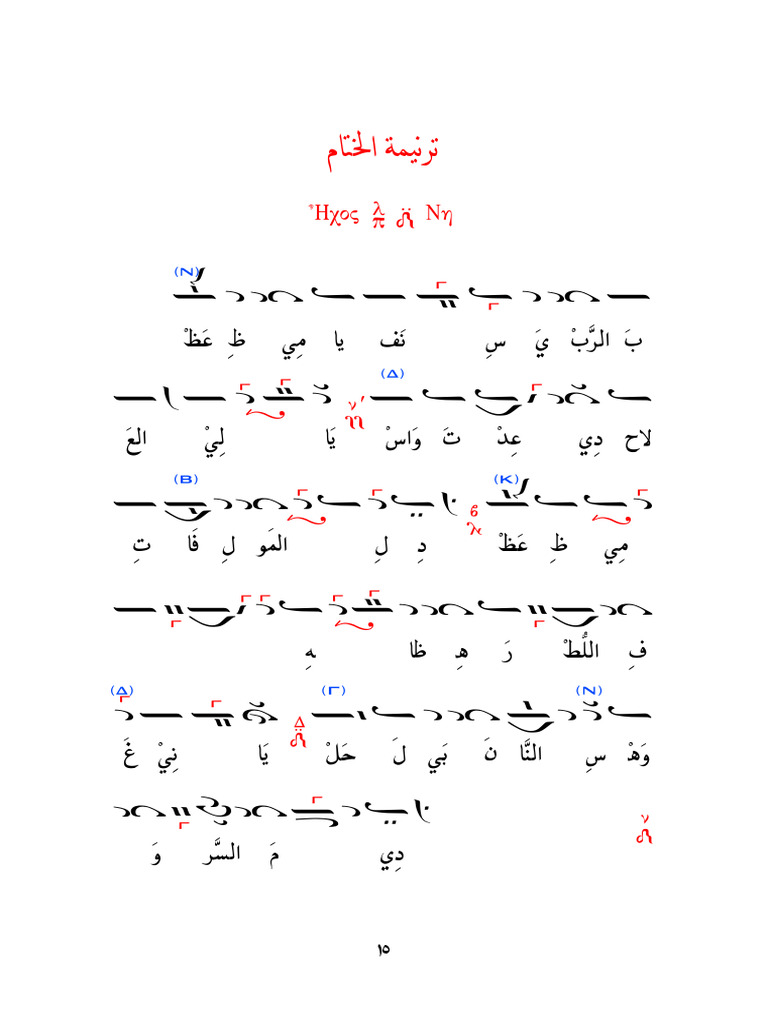 ترنيمة الختام
Ἦχος λ π Νη
(N)
عَظْ ظِ مِي يا نَف سِ يَ الرَّبْ بَ
(Δ)
العَ لِيْ يَا وَاسْ تَ عِدْ دِي لاح
(B) (K)
تِ فَا لِ المَو لِ دِ عَظْ ظِ مِي
هِ ظا هِ رَ اللُّطْ فِ
(Δ) (Γ) (N)
غَ نِيْ يَا حَلْ لَ بَي نَ النَّا سِ وَهْ
وَ السَّر مَ دِي
١٥